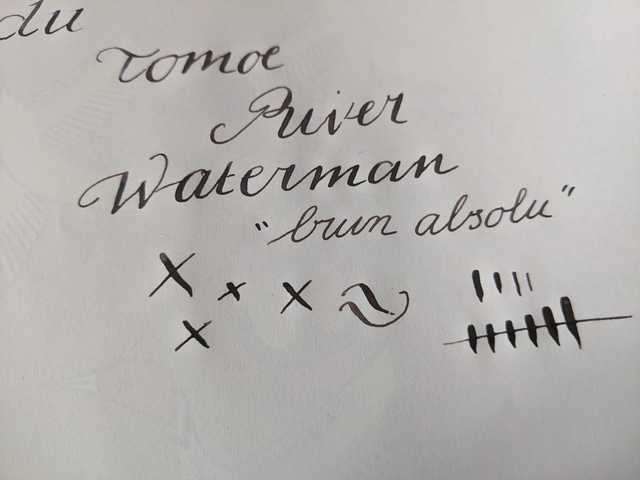 du
Tomoe
River
Waterman
"brun absolu"
x x x
x